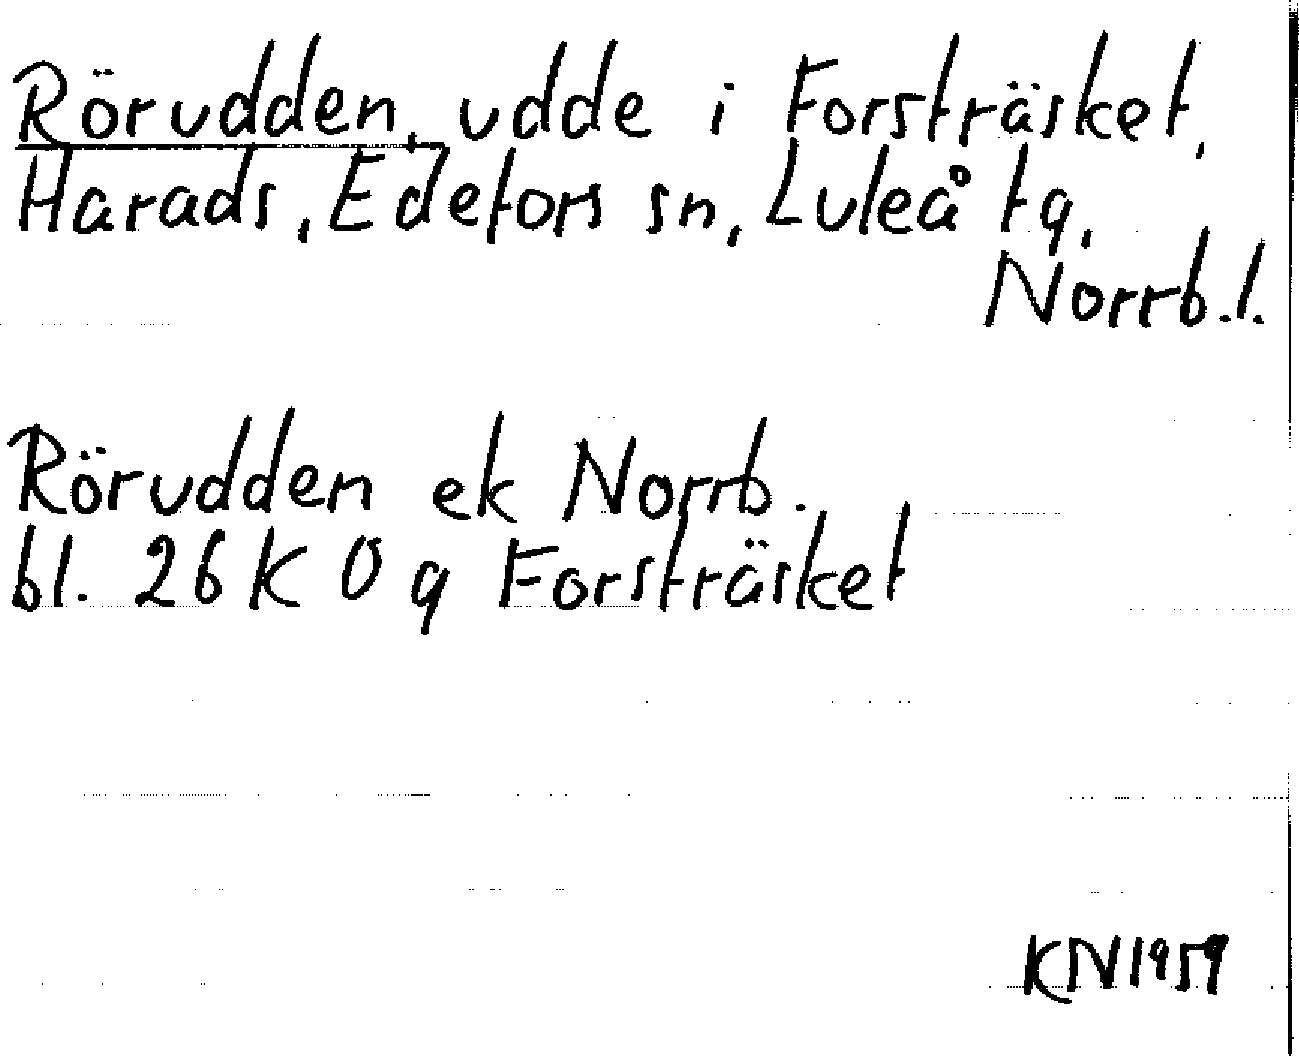 Rörudden, udde i Forsträsket,
Harads, Edefors sn, Luleå tg,
Norrb.l.
Rörudden ek Norrb.
bl. 26 K 0 g Forsträsket
KN1959